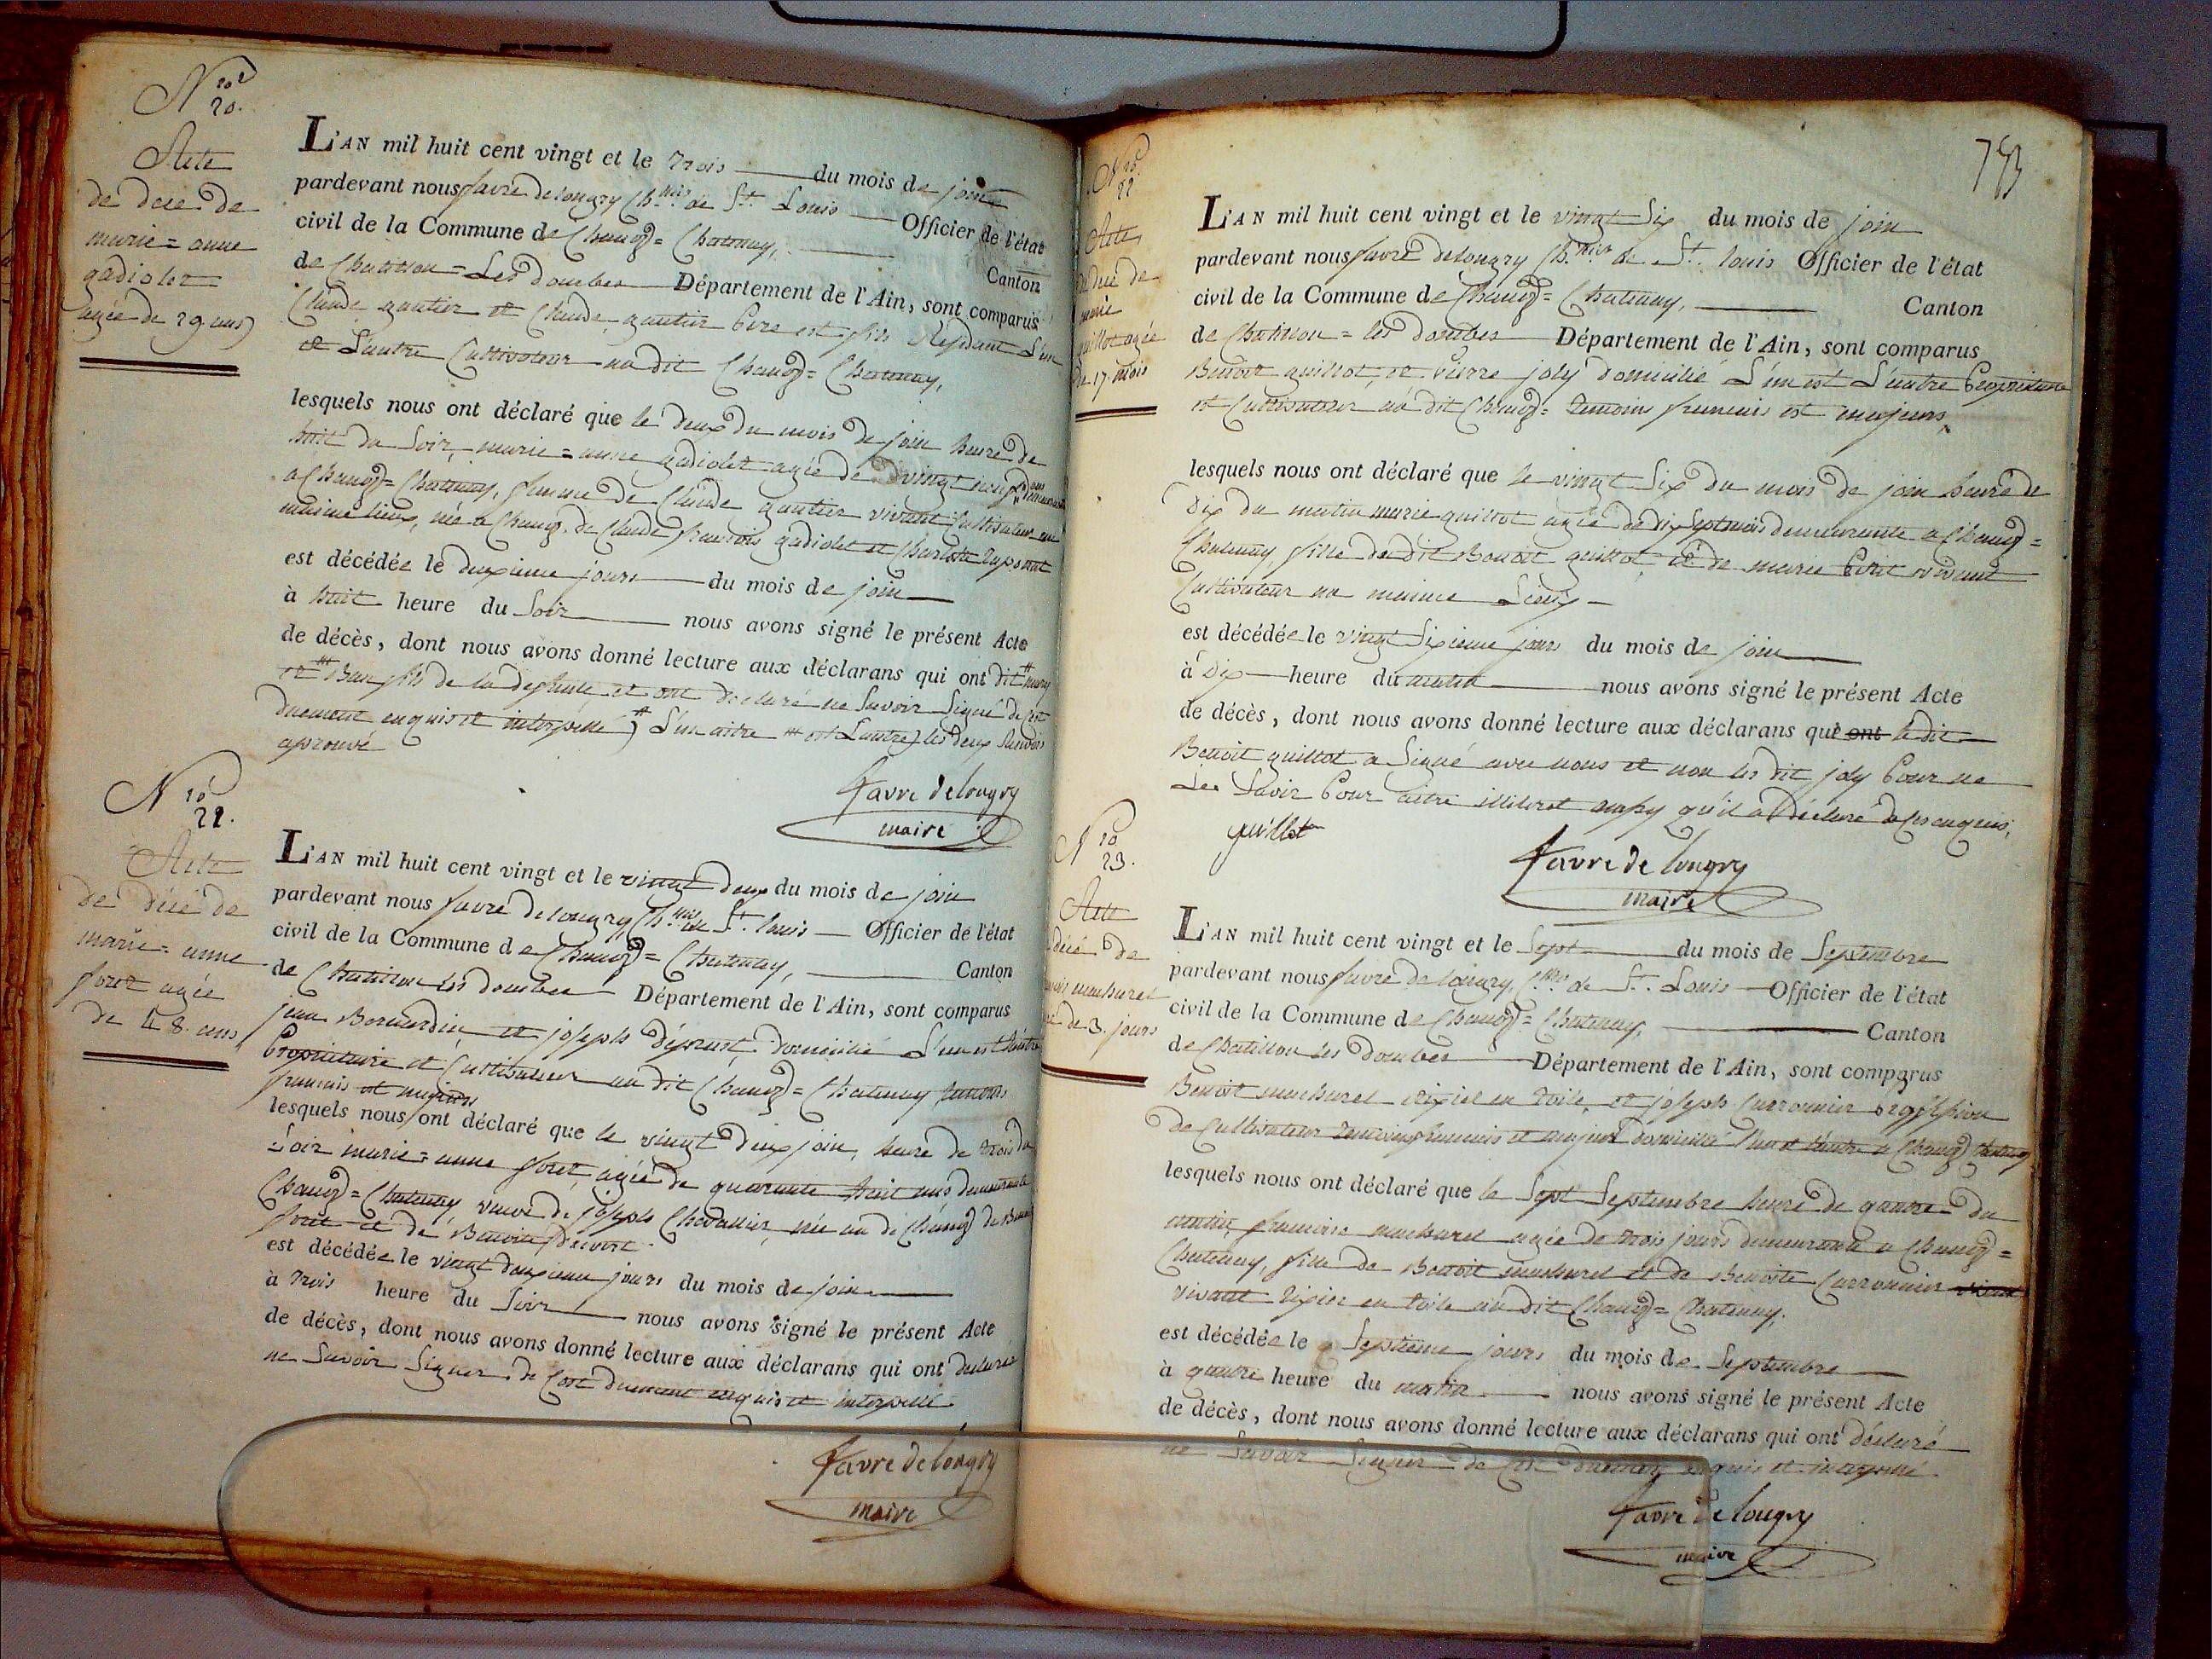 N.ro 20.
Acte
de décé de
marie = anne
gadiolet
agée de 29 ans
L'AN mil huit cent vingt et le trois du mois de join
pardevant nous favre delongry de St. Louis Officier de l'état
civil de la Commune de Chanoz = Chatenay, Canton
de Chatillon = Les dombes Département de l'Ain, sont comparus
Claude gautier et Claude gautier Pere est fils L'un
et L'autre Cultivateur au dit Chanoz = Chatenay,
lesquels nous ont déclaré que le deux du mois de join heure de
huit du Soir, marie = anne gadiolet agée de vingt neuf ans demeurant
a Chanoz = Chatenay, femme de Claude gautier vivant Cultivateur au
maime lieux, née a Chanoz de Claude francois gadiolet et Charlotte
est décédée le deuxieme jours du mois de join
à huit heure du Soir nous avons signé le présent Acte
de décès, dont nous avons donné lecture aux déclarans qui ont dit
fils de la defunte et ont declaré ne Savoir Signé de ce
duement enquis et interpellé L'un aitre est L'autre les deux
aprouvé
favre delongry
maire
N.ro 21.
Acte
de décé de
marie = anne
foret agée
de 48. ans
L'AN mil huit cent vingt et le vingt deux du mois de join
pardevant nous favre delongry de St. Louis Officier de l'état
civil de la Commune de Chanoz = Chatenay, Canton
de Chatillon les dombes Département de l'Ain, sont comparus
jean Bernardin et joseph domicilié L'un est L'autre
Propriétaire et Cultivateur au dit Chanoz = Chatenay temoins
francais et majeurs
lesquels nous ont déclaré que le vingt deux join, heure de trois du
Soir marie = anne foret agée de quarante huit ans demeurante
Chanoz = Chatenay veuve de joseph Chevallier, née au di Chanoz de
foret et de Benoite
est décédée le vingt deuxieme jours du mois de join
à trois heure du Soir nous avons signé le présent Acte
de décès, dont nous avons donné lecture aux déclarans qui ont declaré
ne Savoir Signer de ce duement enquis et interpellé
favre delongry
maire
753
N.ro 22
Acte
de décé de
marie
guillot agée
de 17. mois
L'AN mil huit cent vingt et le vingt Six du mois de join
pardevant nous favre delongry de St. Louis Officier de l'état
civil de la Commune de Chanoz = Chatenay, Canton
de Chatillon = les dombes Département de l'Ain, sont comparus
Benoit guillot, et pierre joly domicilié L'un est L'autre Propriétaire
et Cultivateur au dit Chanoz = temoins francais est majeurs,
lesquels nous ont déclaré que le vingt Six du mois de join heure de
Dix du matin marie guillot agée de dix Sept mois demeurante a Chanoz =
Chatenay, fille de dit Benoit guillot, et de marie vivant
Cultivateur au maime Lieux
est décédée le vingt Sixieme jours du mois de join
à Dix heure du matin nous avons signé le présent Acte
de décès, dont nous avons donné lecture aux déclarans qui ont le dit
Benoit guillot a Signé avec nous et non les dit joly Pour ne
Savoir Pour aitre illiteret qu'il a déclaré de ce enquis,
guillot
favre de longry
maire
N.ro 23.
Acte
décé de
machurel
de 3. jours
L'AN mil huit cent vingt et le Sept du mois de Septembre
pardevant nous favre delongry, de St. Louis Officier de l'état
civil de la Commune de Chanoz = Chatenay, Canton
de Chatillon les dombes Département de l'Ain, sont comparus
Benoit machurel tixier en toile, et joseph Carronnier Proffession
de Cultivateur temoins francais et majeur domicilié l'un et l'autre a Chanoz Chatenay
lesquels nous ont déclaré que le Sept Septembre heure de quatre du
matin, francoise machurel agée de trois jours demeurant a Chanoz =
Chatenay, fille de Benoit machurel et de Benoite Carronnier
vivant tixier en toile au dit Chanoz = Chatenay.
est décédée le Septieme jours du mois de Septembre
à quatre heure du matin nous avons signé le présent Acte
de décès, dont nous avons donné lecture aux déclarans qui ont déclaré
ne Savoir Signer de ce duement enquis et interpellé
favre de longry
maire